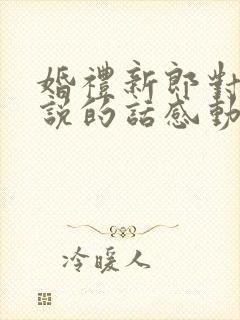 婚禮新郎對
說的話感動
冷暖人